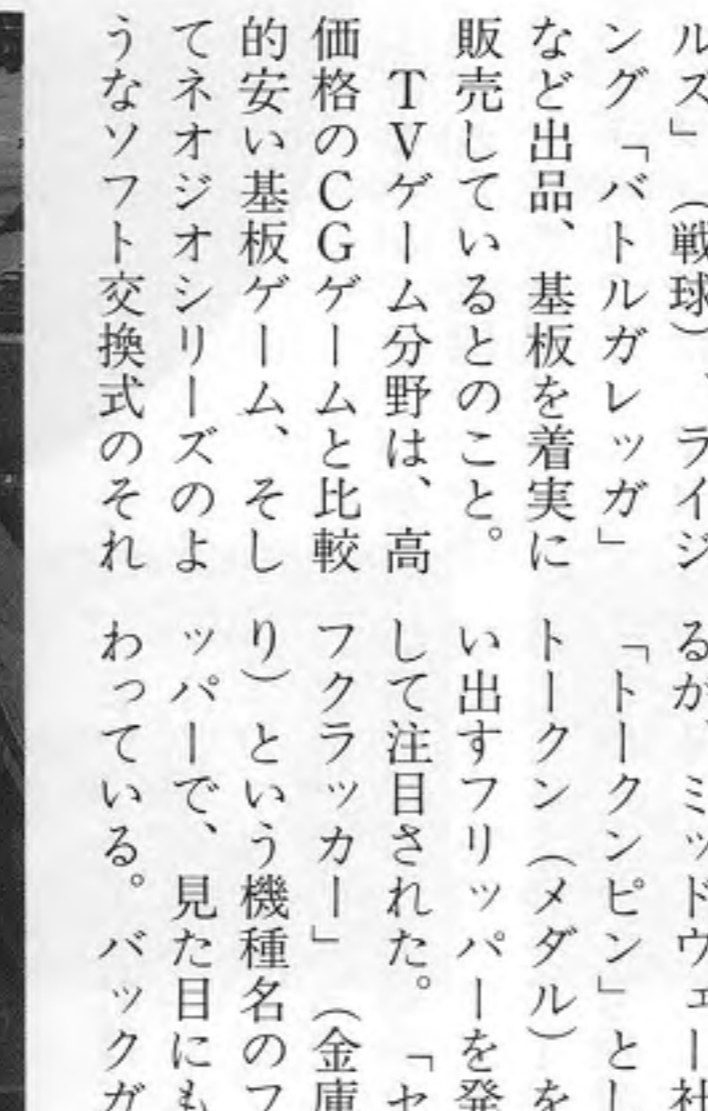 ルズ」(戦球)、ライジ
ング「バトルガレッガ」
など出品、基板を着実に
販売しているとのこと。
TVゲーム分野は、高
価格のCGゲームと比較
的安い基板ゲーム、そし
てネオジオシリーズのよ
うなソフト交換式のそれ
るが、ミッドウェー社
「トークンピン」とし
トークン(メダル)を
い出すフリッパーを発
して注目された。「セ
フクラッカー」(金庫
り)という機種名のフ
ッパーで、見た目にも
わっている。バックガ